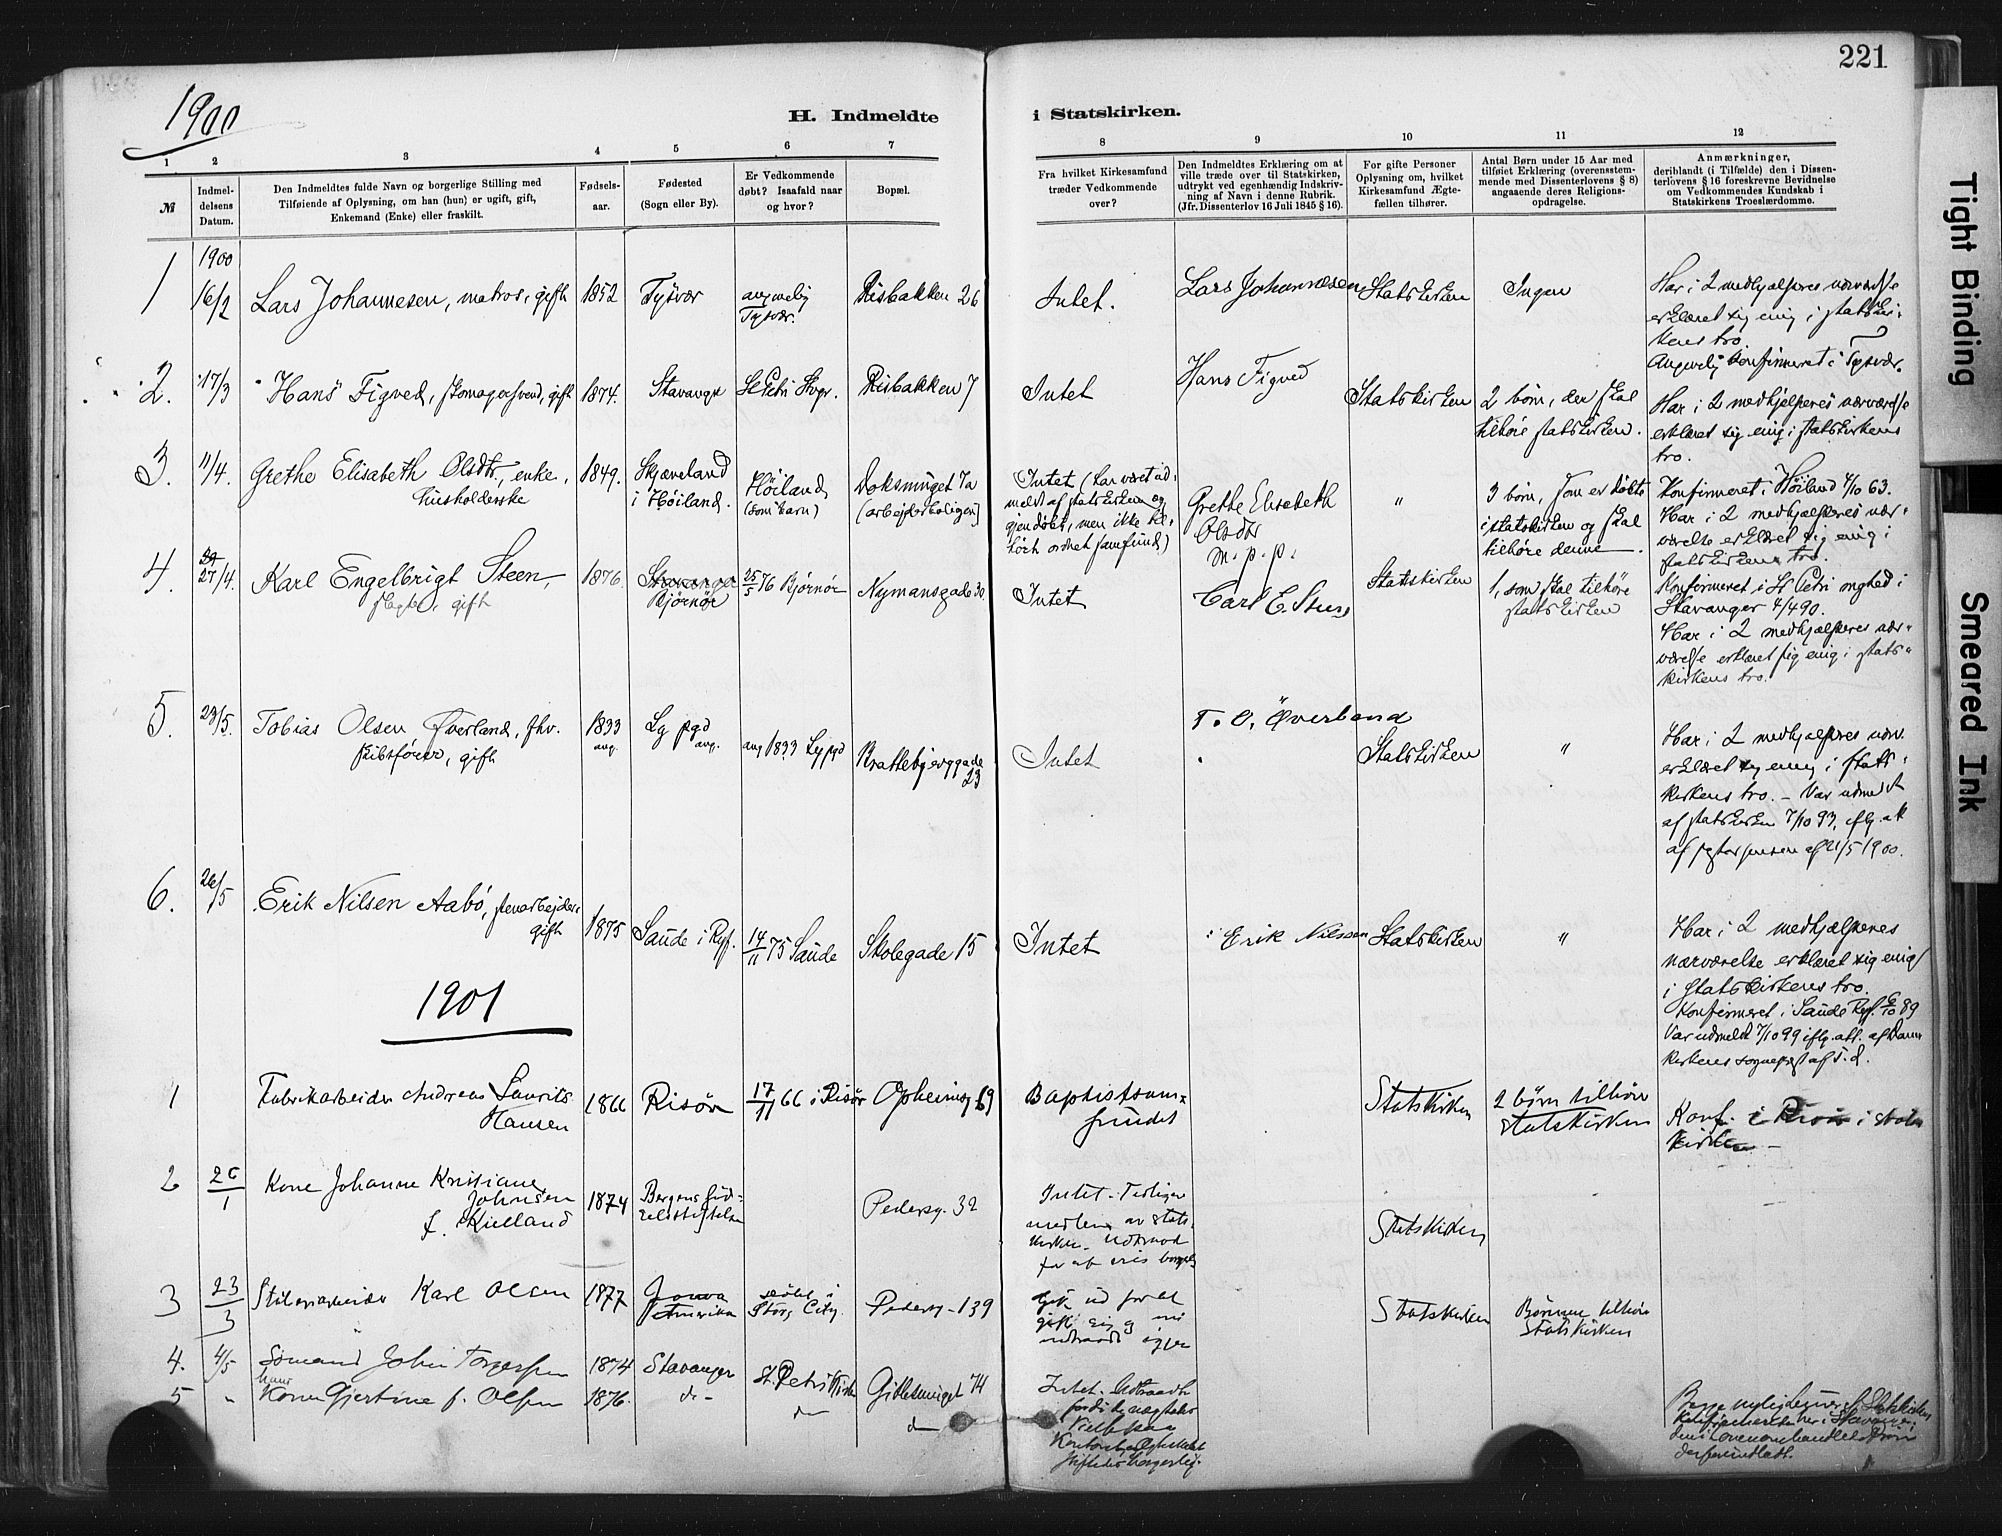 221
1900
H. Indmeldte i Statskirken.
1 2 3 4 5 6 7 8 9 10 11 12
№
Indmel-
delsens
Datum.
Den Indmeldtes fulde Navn og borgerlige Stilling med
Tilføiende af Oplysning, om han (hun) er ugift, gift,
Enkemand (Enke) eller fraskilt.
Fødsels-
aar.
Fødested
(Sogn eller By).
Er Vedkommende
døbt? Isaafald naar
og hvor?
Bopæl.
Fra hvilket Kirkesamfund
træder Vedkommende
over?
Den Indmeldtes Erklæring om at
ville træde over til Statskirken,
udtrykt ved egenhændig Indskriv-
ning af Navn i denne Rubrik.
(Jfr. Dissenterlov 16 Juli 1845 § 16).
For gifte Personer
Oplysning om, hvilket
Kirkesamfund Ægte-
fællen tilhører.
Antal Børn under 15 Aar med
tilføiet Erklæring (overensstem-
mende med Dissenterlovens § 8)
angaaende deres Religions-
opdragelse.
Anmærkninger,
deriblandt (i Tilfælde) den i Dissen-
terlovens § 16 foreskrevne Bevidnelse
om Vedkommendes Kundskab i
Statskirkens Troeslærdomme.
1900
1 16/2 Lars Johannesen, matros, gift 1852 Tysvær
angivelig
Tysvær.
Risbakken 26
Intet.
Lars Johannesen
Statskirken
Ingen
Har i 2 medhjælperes nærværelse
erklæret sig enig i statskir-
kens tro.
Angivelig konfirmeret i Tysvær.
2. 17/3 Hans Figved, skomagersvend, gift 1874. Stavanger St Petri Stvgr. Risbakken 7
Intet
Hans Figved
Statskirken
2 børn, der skal
tilhøre statskirken.
Har i 2 medhjælperes nærværelse
erklæret sig enig i statskirkens
tro.
3. 11/4. Grethe Elisabeth Olsdtr, enke,
husholderske
1849.
Skjæveland
i Høiland.
Høiland
(som barn)
Doksmuget 7a
(arbejderboligen)
Intet (har været ud-
meldt af statskirken og
gjendøbt, men ikke til-
hørt ordnet samfund)
Grethe Elisabeth
Olsdtr
m. p. p.
"
3 børn, som er døbte
i statskirken og skal
tilhøre denne.
Konfirmeret i Høiland 4/10 63.
Har i 2 medhjælperes nær-
værelse erklæret sig enig i
statskirkens tro.
4. 27/4. Karl Engelbrigt Steen,
gift
1876.
Stavanger
Bjørnør
25/5 76 Bjørnør
Nymansgade 30
Intet
Carl E. Steen
Statskirken
1, som skal tilhøre
statskirken
Konfirmeret i St Petri menighed i
Stavanger 4/4 90.
Har i 2 medhjælperes nær-
værelse erklæret sig enig i stats-
kirkens tro.
5. 23/5. Tobias Olsen Øverland, fhv.
skibsfører, gift
1833
ang.
Lg pgd
ang.
ang 1833 Lg pgd
Brattebjerggade
23
Intet
T. O. Överland
Statskirken
"
Har i 2 medhjælperes nærv.
erklæret sig enig i stats-
kirkens tro. - Var udmeldt
af statskirken 7/10 93, iflg. att
af 21/5 1900.
6. 26/5 Erik Nilsen Aabø, stenarbejder,
gift
1875 Saude i Ryf. 14/11 75 Saude Skolegade 15
Intet
Erik Nilssen
Statskirken
"
Har i 2 medhjælperes
nærværelse erklæret sig enig
i Statskirkens tro.
Konfirmeret i Saude Ryf. 6/10 89
Var udmeldt 7/10 99 iflg. att. af Dom-
kirkens sognepræst af s. d.
1901
1 Fabrikarbeider Andreas Laurits
Hansen
1866 Risør 17/11 66 i Risør Opheimsg 69
Baptistsam-
fundet
Statskirken
2 børn tilhør
statskirken
Konf. i Risør i stats
kirken -
2 26/1 Kone Johanne Kristiane
Johnsen
f. Kielland
1874
Bergens fød-
selsstiftelse
Pedersg. 32
Intet - Tidligere
medlem av stats-
kirken. Udtraad
for at vies borgerl
Statskirken
3 23/3 Karl Olsen 1877
Amerika
døbt i
City
Pedersg - 139
Gik ud for at
gifte sig og
igjen
Statskirken
Børnene tilhør
Statskirken
4. 4/5 Sømand John Torgersen 1874 Stavanger St. Petri Kirke Gitlesmuget 74
5 " hans
Kone Gjertine f. Olsen 1876. do - do do
Intet. Udtraadt
fordi de nægtedes
Vielse
borgerlig.
Tight Binding
Smeared Ink